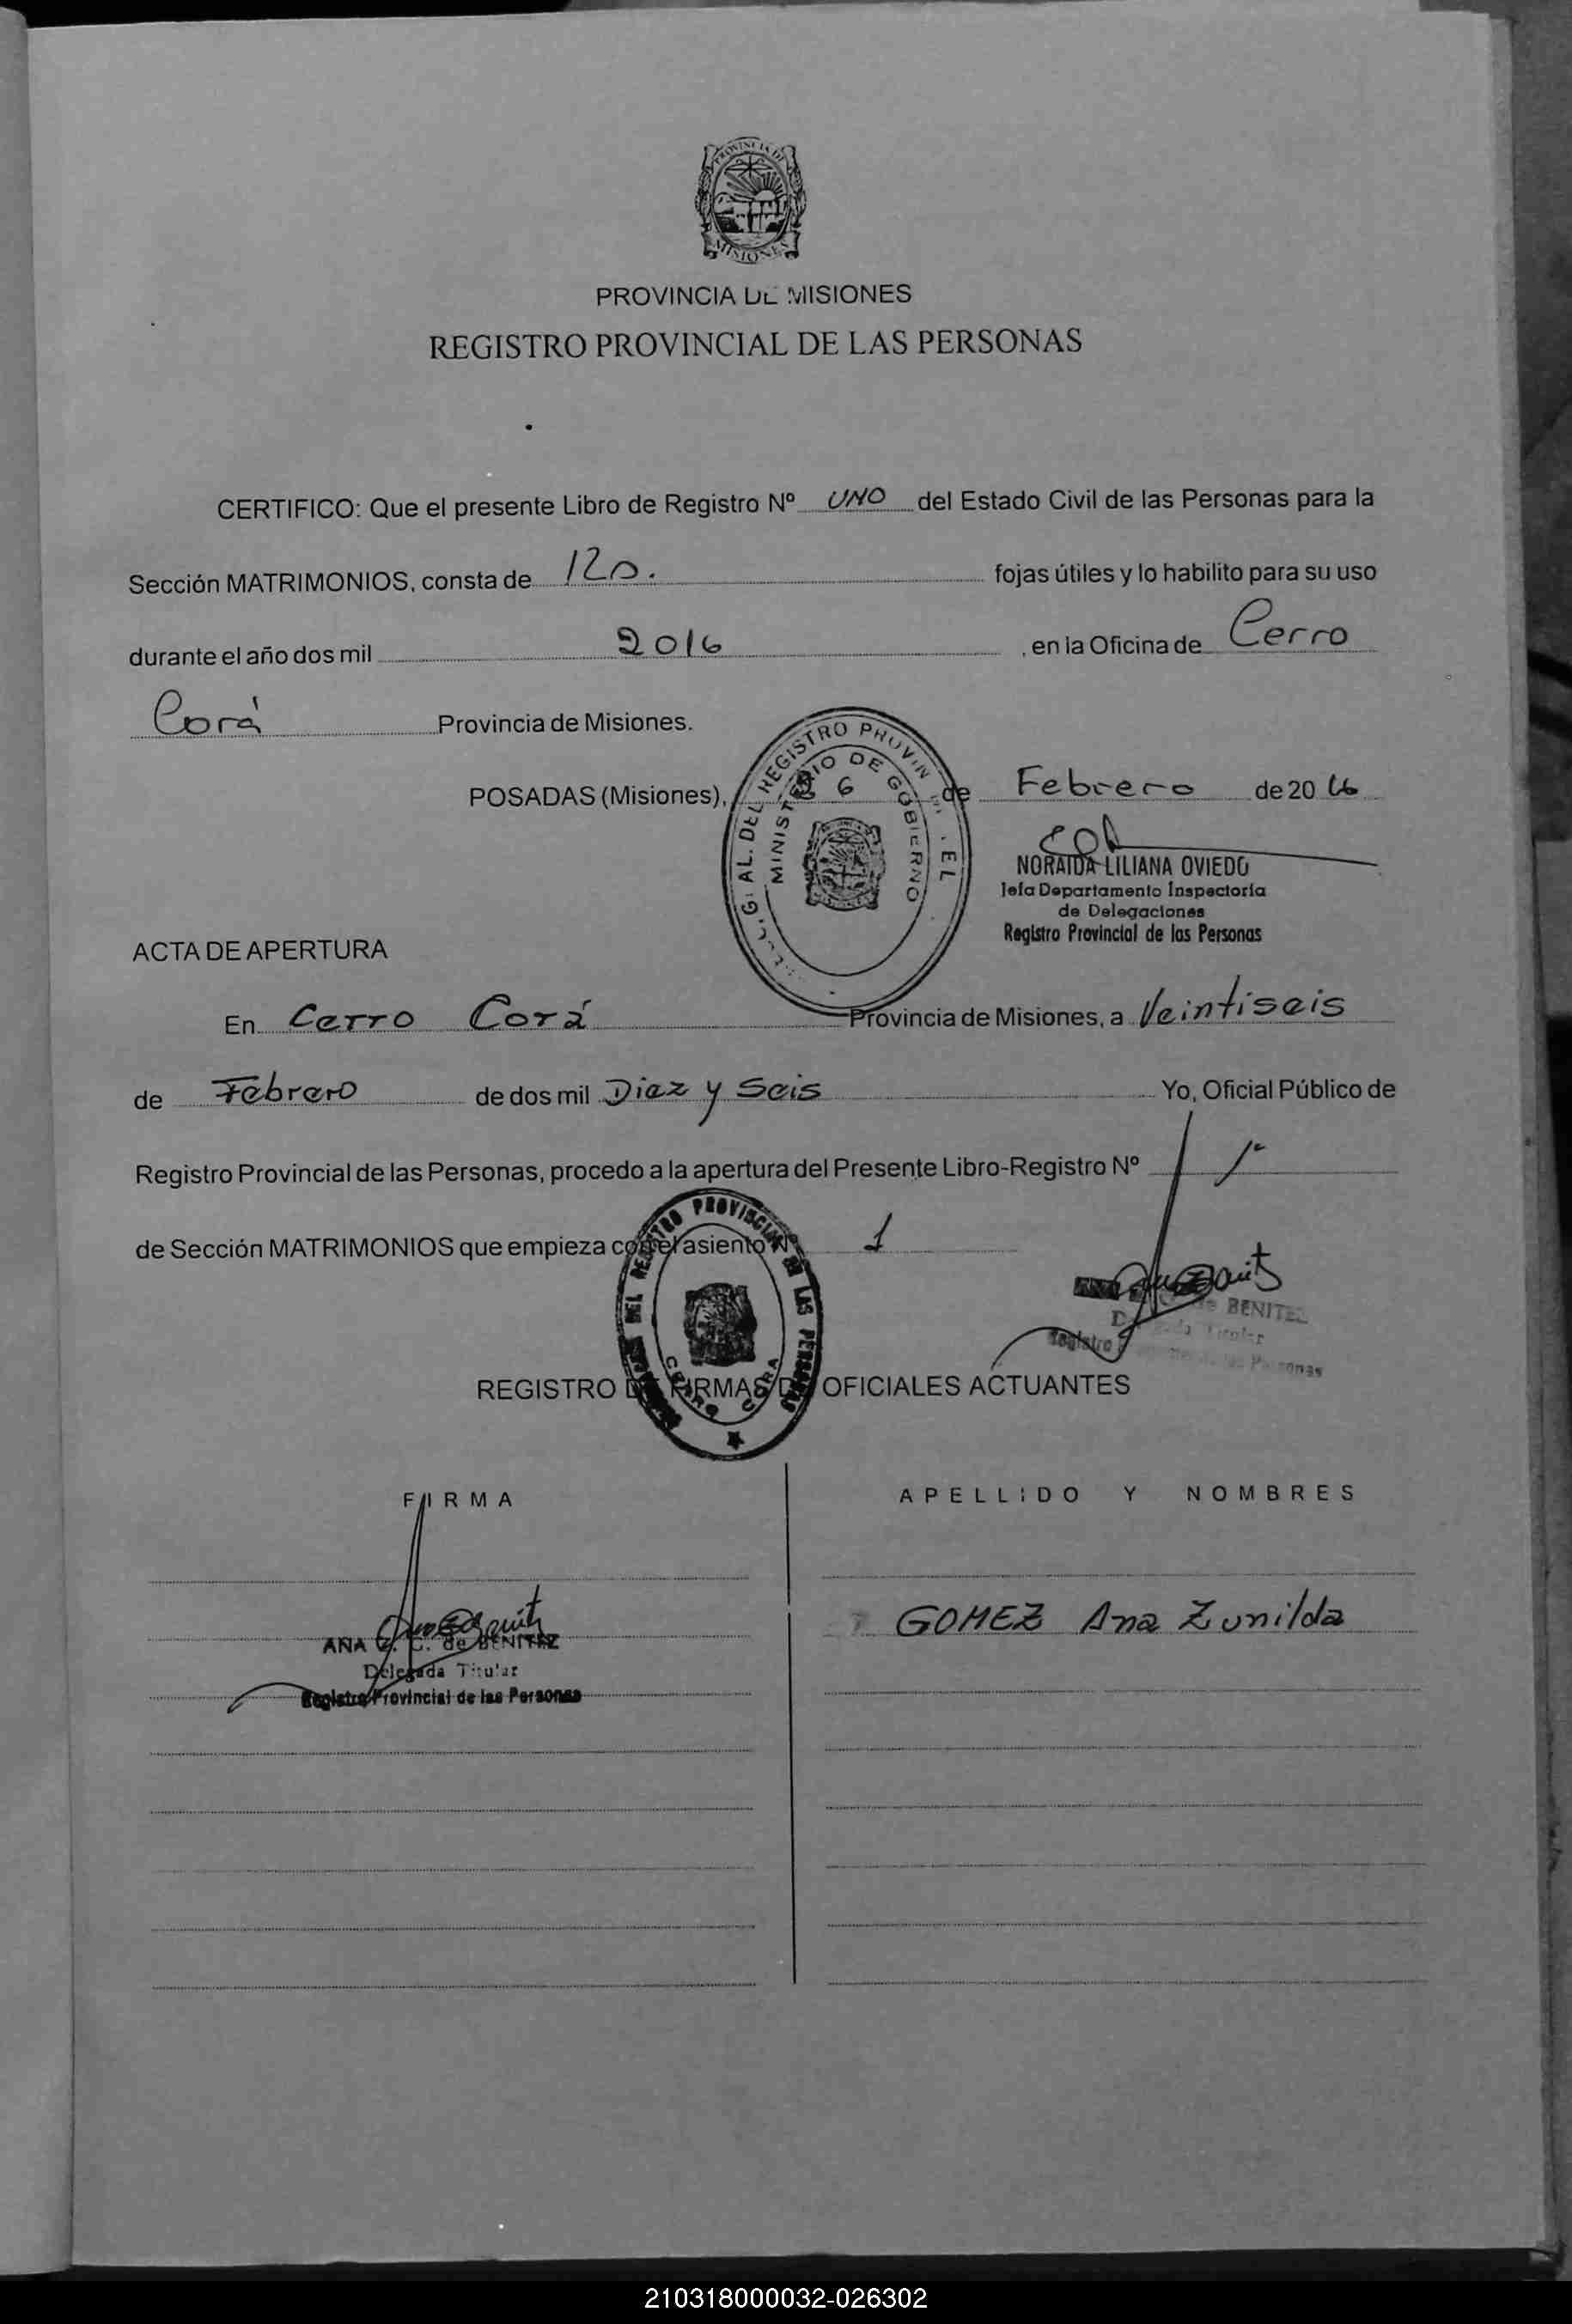 PROVINCIA DE
MISIONES
PROVINCIA DE MISIONES
REGISTRO PROVINCIAL DE LAS PERSONAS
CERTIFICO: Que el presente Libro de Registro Nº UNO del Estado Civil de las Personas para la
Sección MATRIMONIOS, consta de 120. fojas útiles y lo habilito para su uso
durante el año dos mil 2016, en la Oficina de Cerro
Corá Provincia de Misiones.
POSADAS (Misiones), 26 de Febrero de 20 16
REGISTRO PROVIN
MINISTERIO DE GOBIERNO
NORAIDA LILIANA OVIEDO
Jefa Departamento Inspectoría
de Delegaciones
Registro Provincial de las Personas
ACTA DE APERTURA
En Cerro Corá Provincia de Misiones, a Veintiseis
de Febrero de dos mil Diez y Seis Yo, Oficial Público de
Registro Provincial de las Personas, procedo a la apertura del Presente Libro-Registro Nº 1º
de Sección MATRIMONIOS que empieza con el asiento Nº 1
DEL REGISTRO PROVINCIAL DE LAS PERSONAS
CERRO CORA
de BENITEZ
Titular
Registro Personas
REGISTRO DE FIRMAS DE OFICIALES ACTUANTES
FIRMA APELLIDO Y NOMBRES
ANA de BENITEZ GOMEZ Ana Zunilda
Delegada Titular
Registro Provincial de las Personas
210318000032-026302